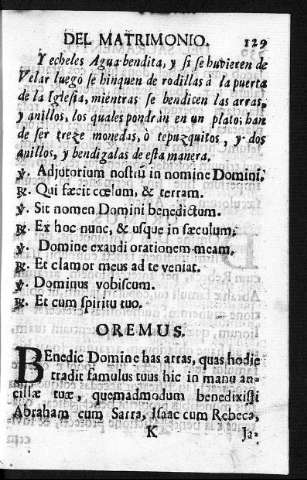 DEL MATRIMONIO. 129
Y echeles Agua bendita, y si se huvieren de
Velar luego se hinquen de rodillas à la puerta
de la Iglesia, mientras se bendicen las arras,
y anillos, los quales pondràn en un plato; han
de ser treze monedas, ò tepuzquitos, y dos
anillos, y bendigalas de esta manera.
℣. Adjutorium nostrũ in nomine Domini.
℟. Qui fæcit cœlum, & terram.
℣. Sit nomen Domini benedictum.
℟. Ex hoc nunc, & usque in sæculum.
℣. Domine exaudi orationem meam.
℟. Et clamor meus ad te veniat.
℣. Dominus vobiscum.
℟. Et cum spiritu tuo.
OREMUS.
Benedic Domine has arras, quas hodie
tradit famulus tuus hic in manu an-
cillæ tuæ, quemadmodum benedixisti
Abraham cum Sarra, Isaac cum Rebeca,
K Ja-